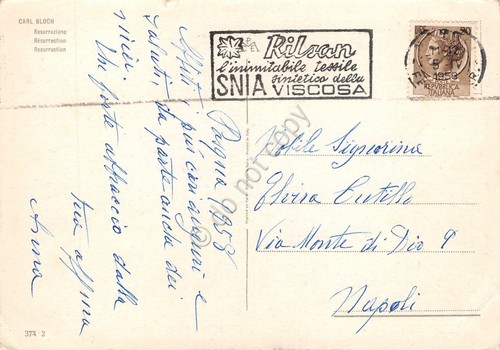 CARL BLOCH
Resurrezione
Résurrection
Resurrection
Rilsan
l'inimitabile tessile
sintetico della
SNIA VISCOSA
1958
REPVBBLICA
ITALIANA
Pasqua 1958
più cari auguri e
saluti da parte anche dei
miei.
Un forte abbraccio dalla
tua aff.ma
Anna
Nobile Signorina
Elvira Cutillo
Via Monte di Dio 9
Napoli
374/2
do not copy